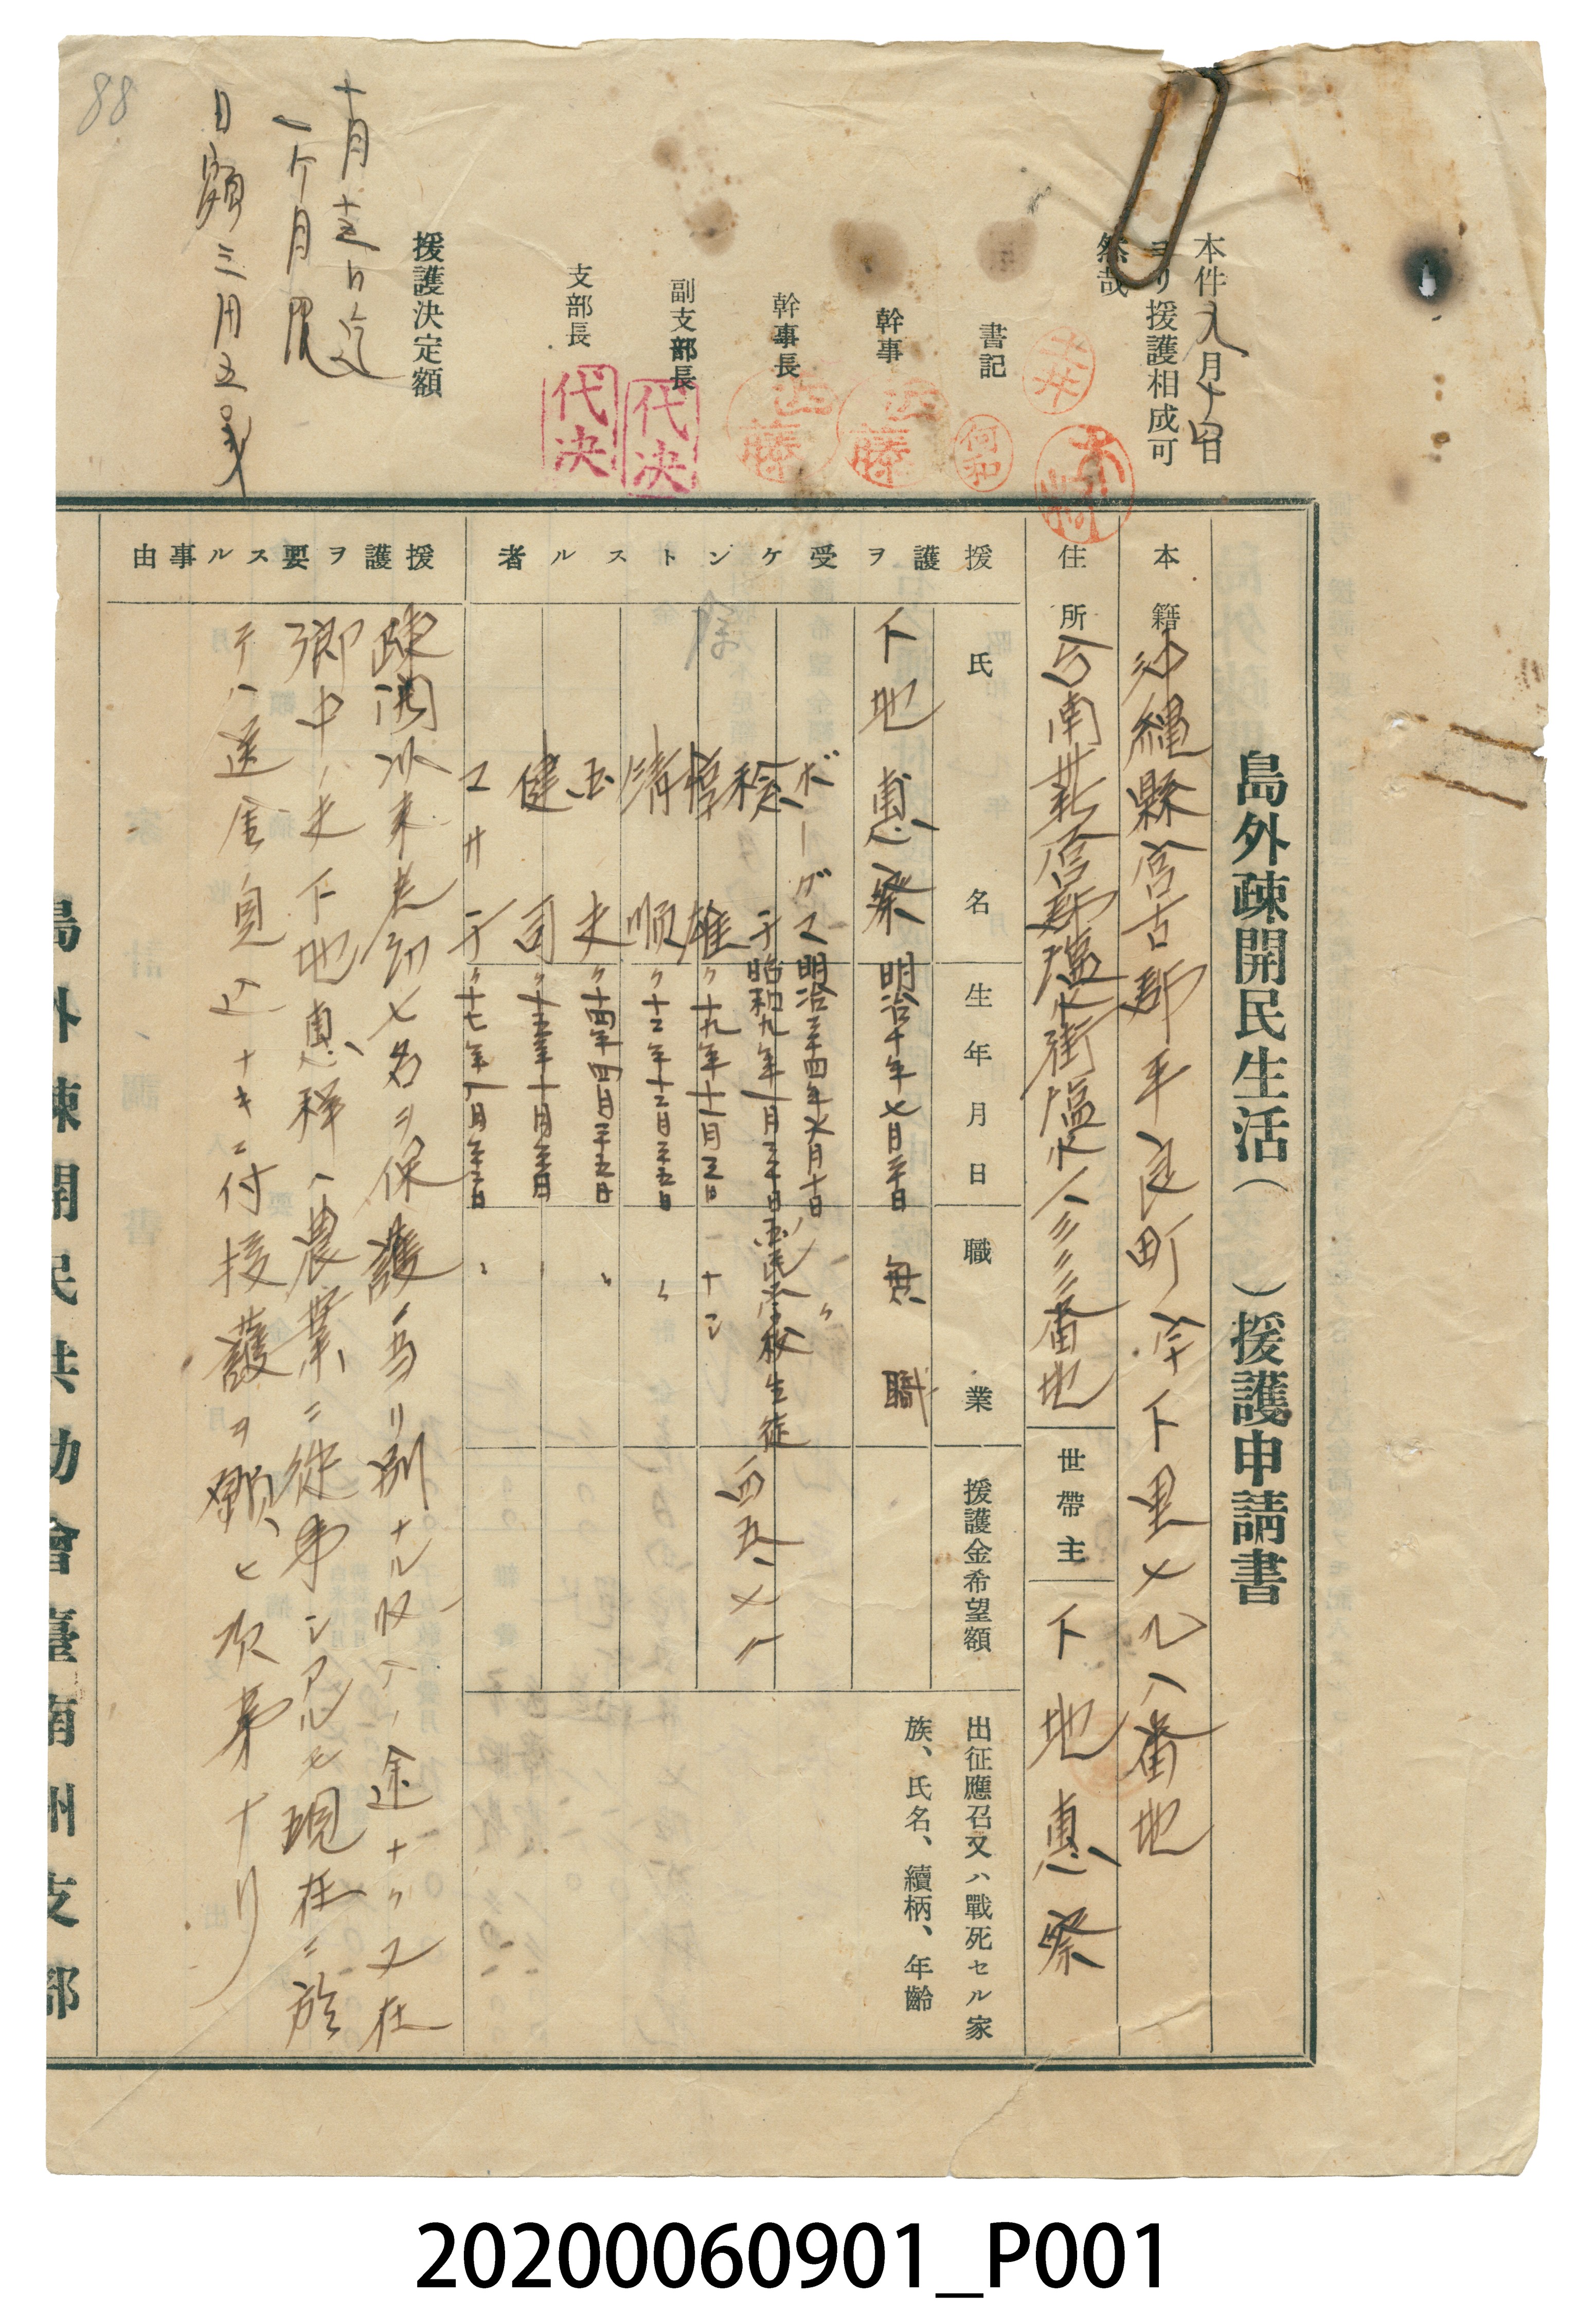 島外疎開民生活（　　）援護申請書
本籍 沖縄縣宮古郡平良町字下里七九八番地
住所 台南州新営郡塩水街塩水八三三番地
世帶主 下地惠祭
援護ヲ受ケントスル者
氏名 生年月日 職業 援護金希望額
出征應召又ハ戰死セル家族、氏名、續柄、年齡
下地惠祭 明治十年七月二十日 無職
ボーグマ 明治三十四年六月十日 〃
子 昭和九年一月三十日 国民学校生徒
雄 〃十九年十一月三日 ナシ
清順 〃十二年十二月二十五日 〃
玉夫 〃十四年四月二十五日 〃
健司 〃十五年十月二十日 〃
マサ子 〃十七年八月二十二日 〃
援護ヲ要スル事由
疎開以来老幼七名ヲ保護ノ当リ別ナル収入ノ途ナク又在
郷中ノ夫下地惠祥ハ農業ニ從事シアルモ現在ニ於
テハ送金見込ナキニ付援護ヲ願ヒ次第ナリ
島外疎開民共助會臺南州支部
本件八月十四日
ヨリ援護相成可
然哉
書記
幹事
幹事長
副支部長
支部長
代決
代決
援護決定額
十月十三日迄
一ケ月限
日額三円五〇戔
88
20200060901_P001